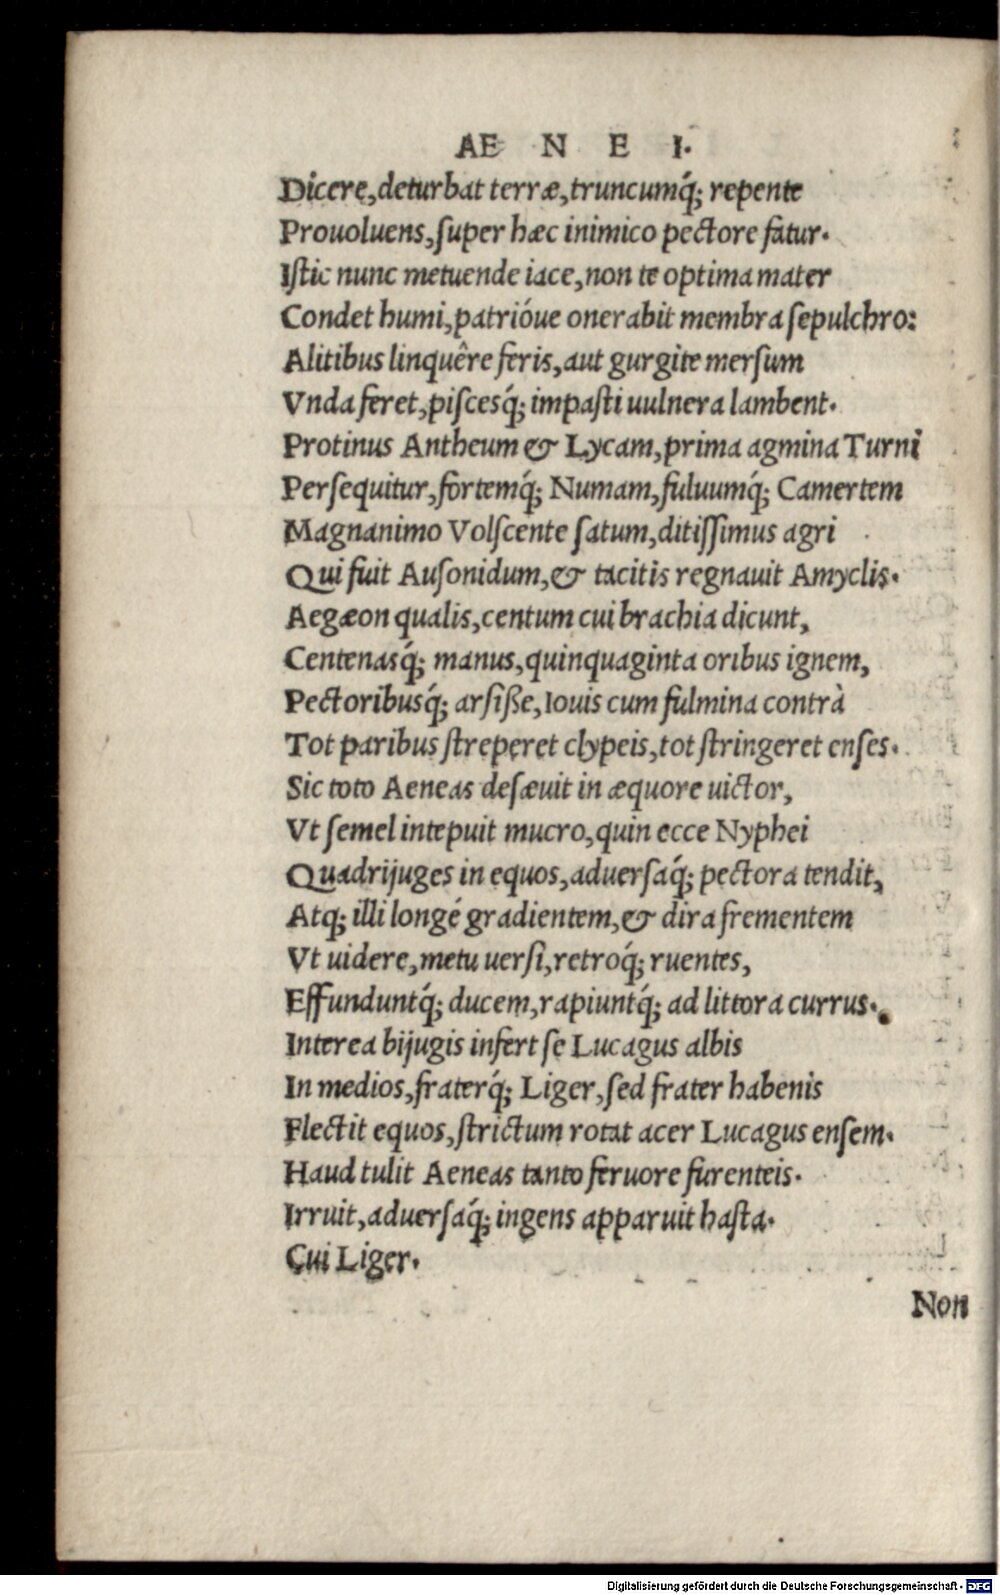 AE N E I.
Dicere, deturbat terræ, truncumq́; repente
Prouoluens, ſuper hæc inimico pectore fatur.
Iſtic nunc metuende iace, non te optima mater
Condet humi, patrióue onerabit membra ſepulchro:
Alitibus linquêre feris, aut gurgite merſum
Vnda feret, piſcesq́; impaſti uulnera lambent.
Protinus Antheum & Lycam, prima agmina Turni
Perſequitur, fortemq́; Numam, fuluumq́; Camertem
Magnanimo Volſcente ſatum, ditiſſimus agri
Qui fuit Auſonidum, & tacitis regnauit Amyclis.
Aegæon qualis, centum cui brachia dicunt,
Centenasq́; manus, quinquaginta oribus ignem,
Pectoribusq́; arſiße, Iouis cum fulmina contrà
Tot paribus ſtreperet clypeis, tot ſtringeret enſes.
Sic toto Aeneas deſæuit in æquore uictor,
Vt ſemel intepuit mucro, quin ecce Nyphei
Quadrijuges in equos, aduerſaq́; pectora tendit,
Atq; illi longé gradientem, & dira frementem
Vt uidere, metu uerſi, retroq́; ruentes,
Effunduntq́; ducem, rapiuntq́; ad littora currus.
Interea bijugis infert ſe Lucagus albis
In medios, fraterq́; Liger, ſed frater habenis
Flectit equos, ſtrictum rotat acer Lucagus enſem.
Haud tulit Aeneas tanto feruore furenteis.
Irruit, aduerſaq́; ingens apparuit haſta.
Cui Liger.
Non
Digitalisierung gefördert durch die Deutsche Forschungsgemeinschaft - DFG